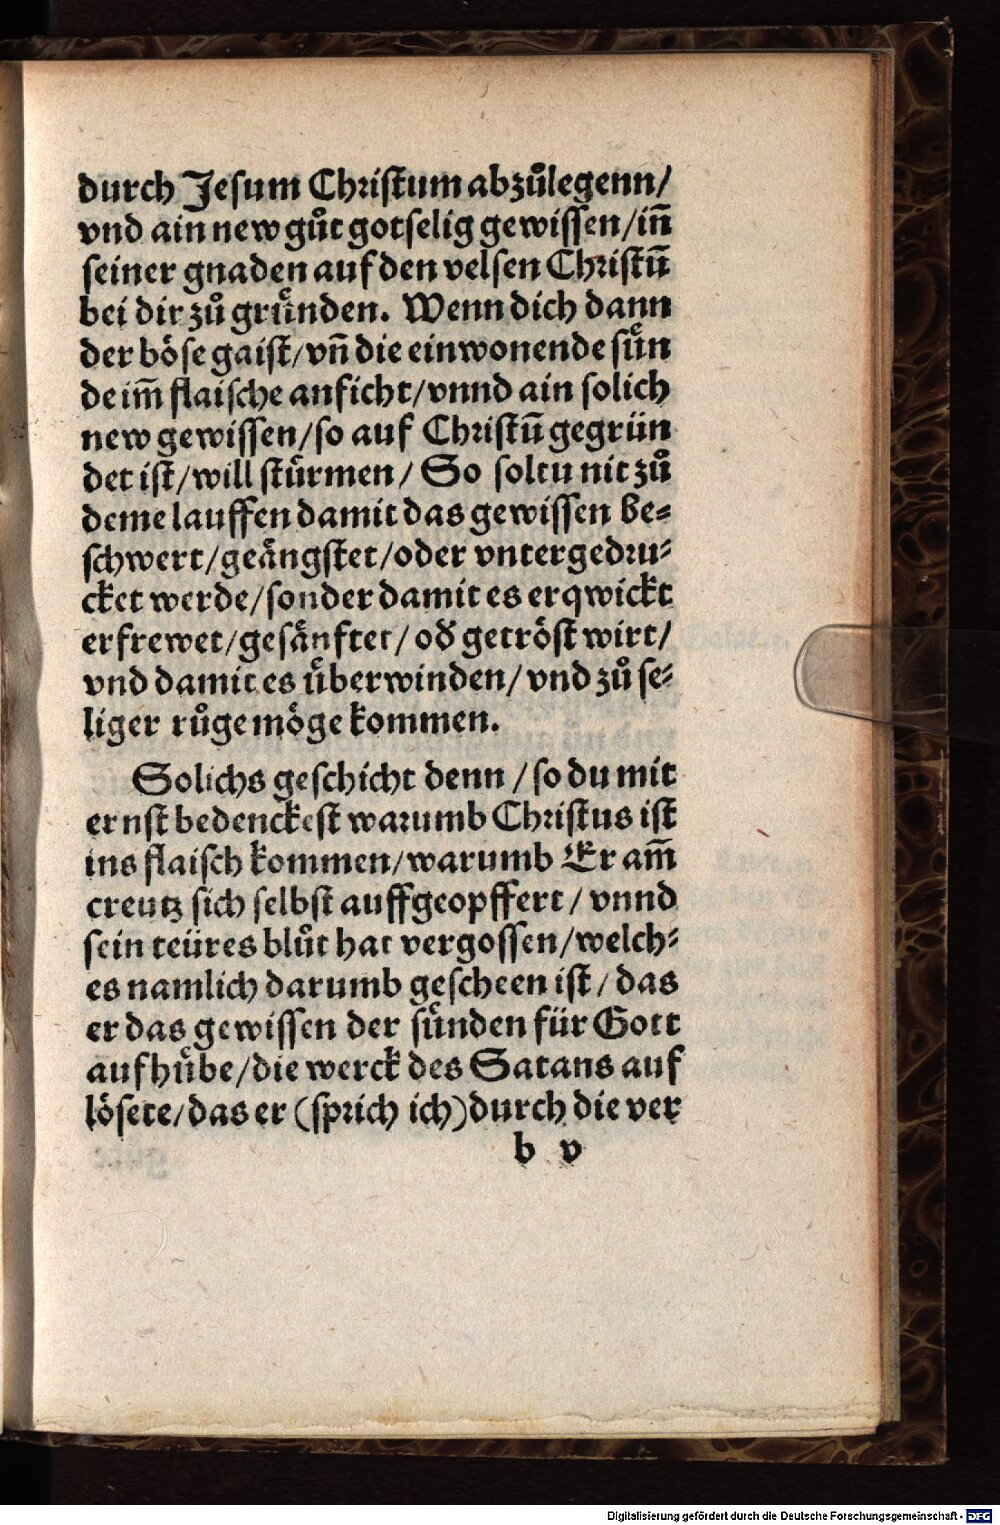 durch Jesum Christum abzůlegenn/
vnd ain new gůt gotselig gewissen/in̄
seiner gnaden auf den velsen Christū
bei dir zů grůnden. Wenn dich dann
der böse gaist/vn̄ die einwonende sün
de im̄ flaische anficht/vnnd ain solich
new gewissen/so auf Christū gegrün
det ist/will stürmen/ So soltu nit zů
deme lauffen damit das gewissen be⸗
schwert/geängstet/oder vntergedru⸗
cket werde/sonder damit es erqwickt
erfrewet/gesänftet/ od̕ getröst wirt/
vnd damit es überwinden/vnd zů se⸗
liger růge möge kommen.
Solichs geschicht denn/so du mit
ernst bedenckest warumb Christus ist
ins flaisch kommen/warumb Er am̄
creutz sich selbst auffgeopffert/vnnd
sein teüres blůt hat vergossen/welch⸗
es namlich darumb gescheen ist/das
er das gewissen der sünden für Gott
aufhübe/die werck des Satans auf
lösete/das er (sprich ich)durch die ver
b v
Digitalisierung gefördert durch die Deutsche Forschungsgemeinschaft - DFG